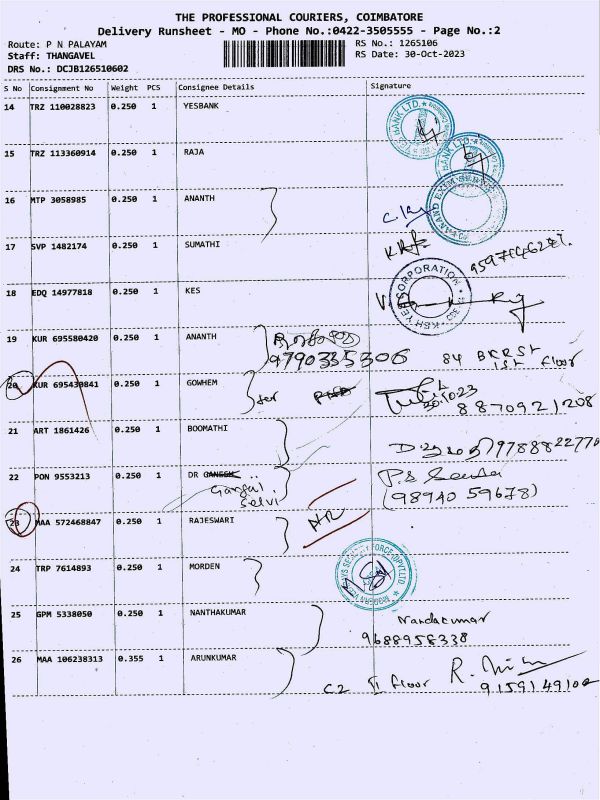 THE PROFESSIONAL COURIERS, COIMBATORE
Delivery Runsheet - MO - Phone No.:0422-3505555 - Page No.:2
Route: P N PALAYAM RS No.: 1265106
Staff: THANGAVEL RS Date: 30-Oct-2023
DRS No.: DCJB126510602
S No Consignment No Weight PCS Consignee Details Signature
14 TRZ 110028823 0.250 1 YESBANK
15 TRZ 113360914 0.250 1 RAJA
16 MTP 3058985 0.250 1 ANANTH
17 SVP 1482174 0.250 1 SUMATHI
18 EDQ 14977818 0.250 1 KES
19 KUR 695580420 0.250 1 ANANTH
9790335306 84 1st Floor
20 KUR 695430841 0.250 1 GOWHEM
8870921208
21 ART 1861426 0.250 1 BOOMATHI
22 PON 9553213 0.250 1 DR GANESH
Selvi (98940 59678)
23 MAA 572468847 0.250 1 RAJESWARI
24 TRP 7614893 0.250 1 MORDEN
25 GPM 5338050 0.250 1 NANTHAKUMAR
Nandacumar
9688958338
26 MAA 106238313 0.355 1 ARUNKUMAR
C2 II Floor